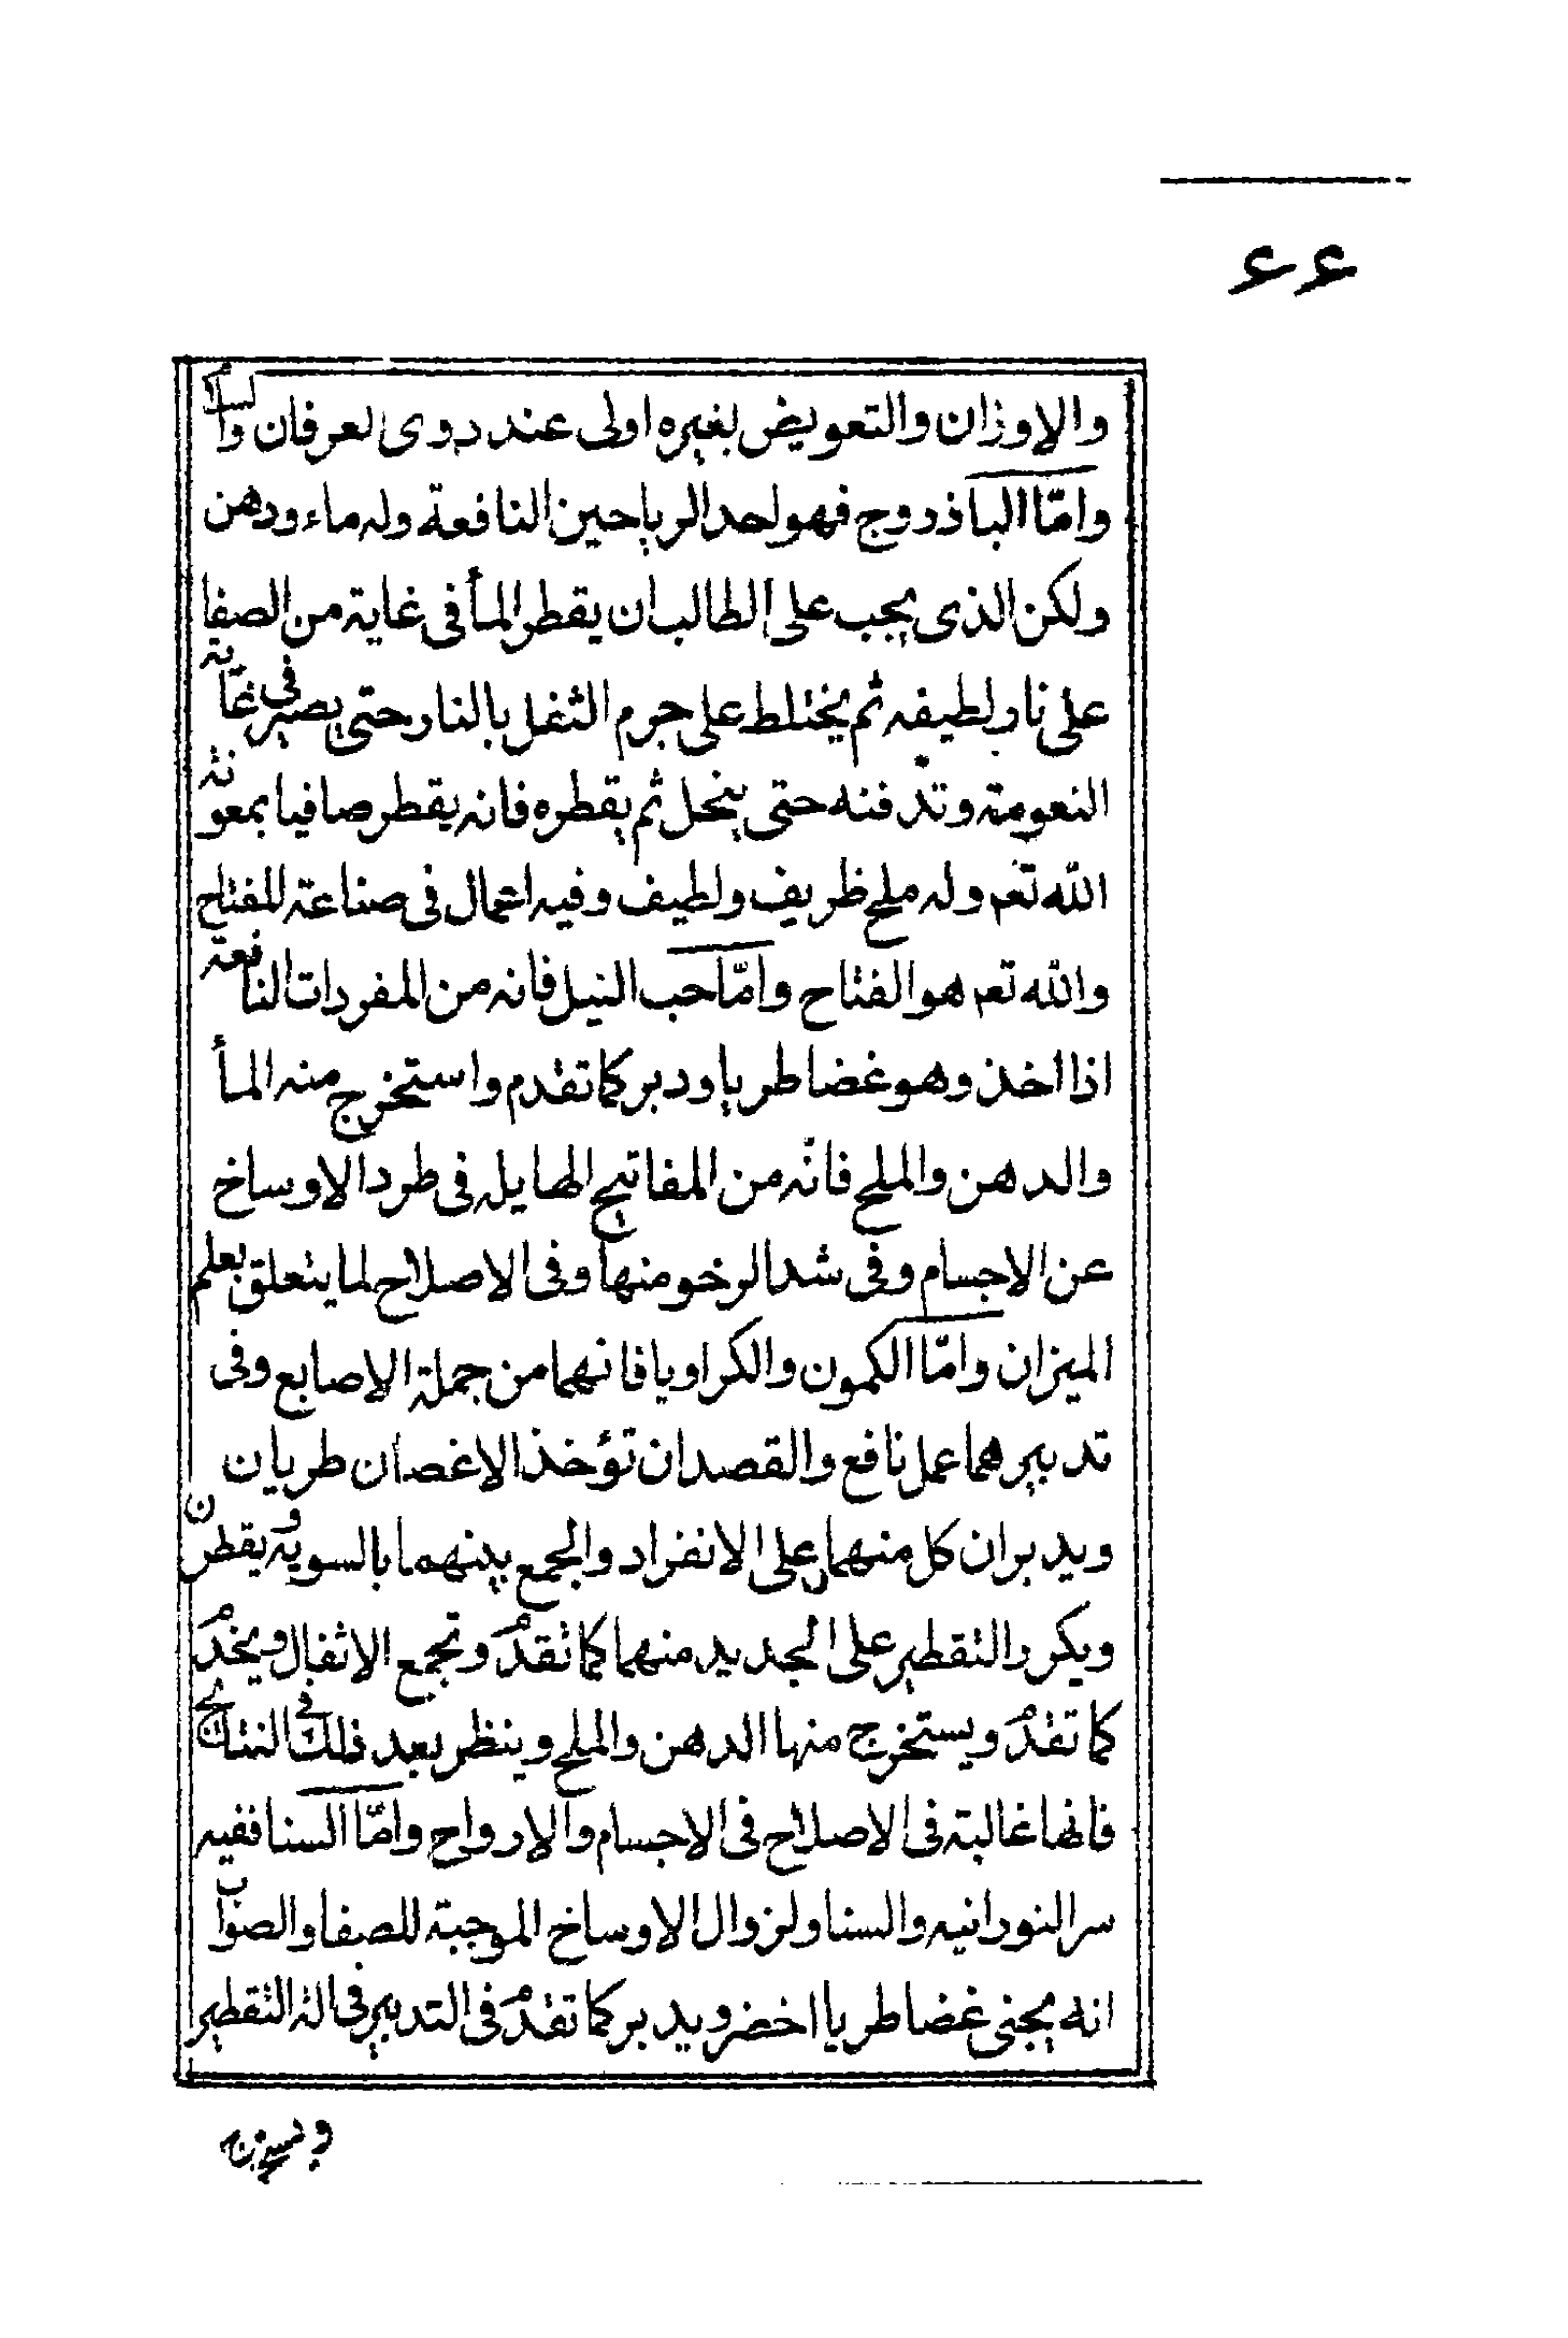 ۶۶
والاوزان والتعويض بغيره اولى عند ذوى العرفان والسلام
وامّا الباذروج فهو احد الرياحين النافعة وله ماء ودهن
ولكن الذى يجب على الطالب ان يقطر المأ فى غاية من الصفا
على نار لطيفه ثم يختلط على جرم الثفل بالنار حتى يصير فى غاية
النعومة وتدفنه حتى ينحل ثم يقطره فانه يقطر صافيا بمعونة
الله تعم وله ملح ظريف ولطيف وفيه اعمال فى صناعة المفتاح
والله تعم هو الفتاح وامّا حب النيل فانه من المفردات النافعة
اذا اخذ وهو غضا طريا ودبر كما تقدم واستخرج منه المأ
والدهن والملح فانّه من المفاتيح الهايله فى طرد الاوساخ
عن الاجسام وفى شد الرخو منها وفى الاصلاح لما يتعلق بعلم
الميزان وامّا الكمون والكراويا فانهما من جملة الاصابع وفى
تدبيرهما عمل نافع والقصد ان تؤخذ الاغصان طريان
ويدبران كل منهما على الانفراد والجمع بينهما بالسويه ويقطرن
ويكرر التقطير على الجديد منهما كما تقدم وتجمع الاثفال ويخدم
كما تقدم ويستخرج منها الدهن والملح وينظر بعد ذلك فى النتائج
فانها غالبة فى الاصلاح فى الاجسام والارواح وامّا السنا ففيه
سر النورانيه والسنا ولزوال الاوساخ الموجبة للصفا والصواب
انه يجنى غضا طريا اخضر ويدبر كما تقدم فى التدبير فى الة التقطير